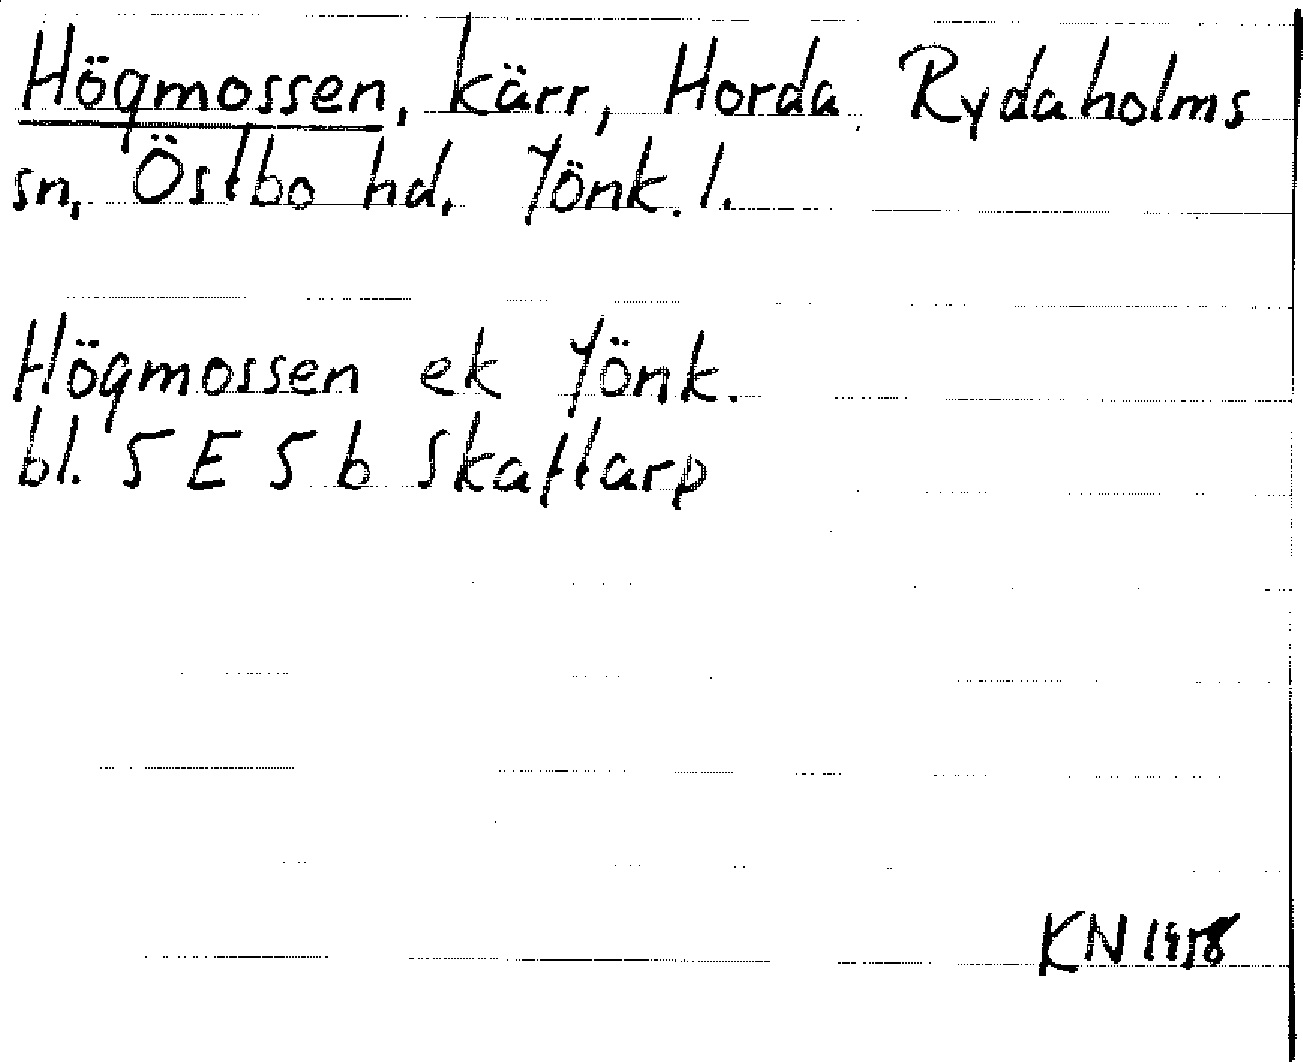 Högmossen, kärr, Horda, Rydaholms
sn, Östbo hd, Jönk. l.
Högmossen ek Jönk.
bl. 5 E 5 b Skaftarp
KN 1958